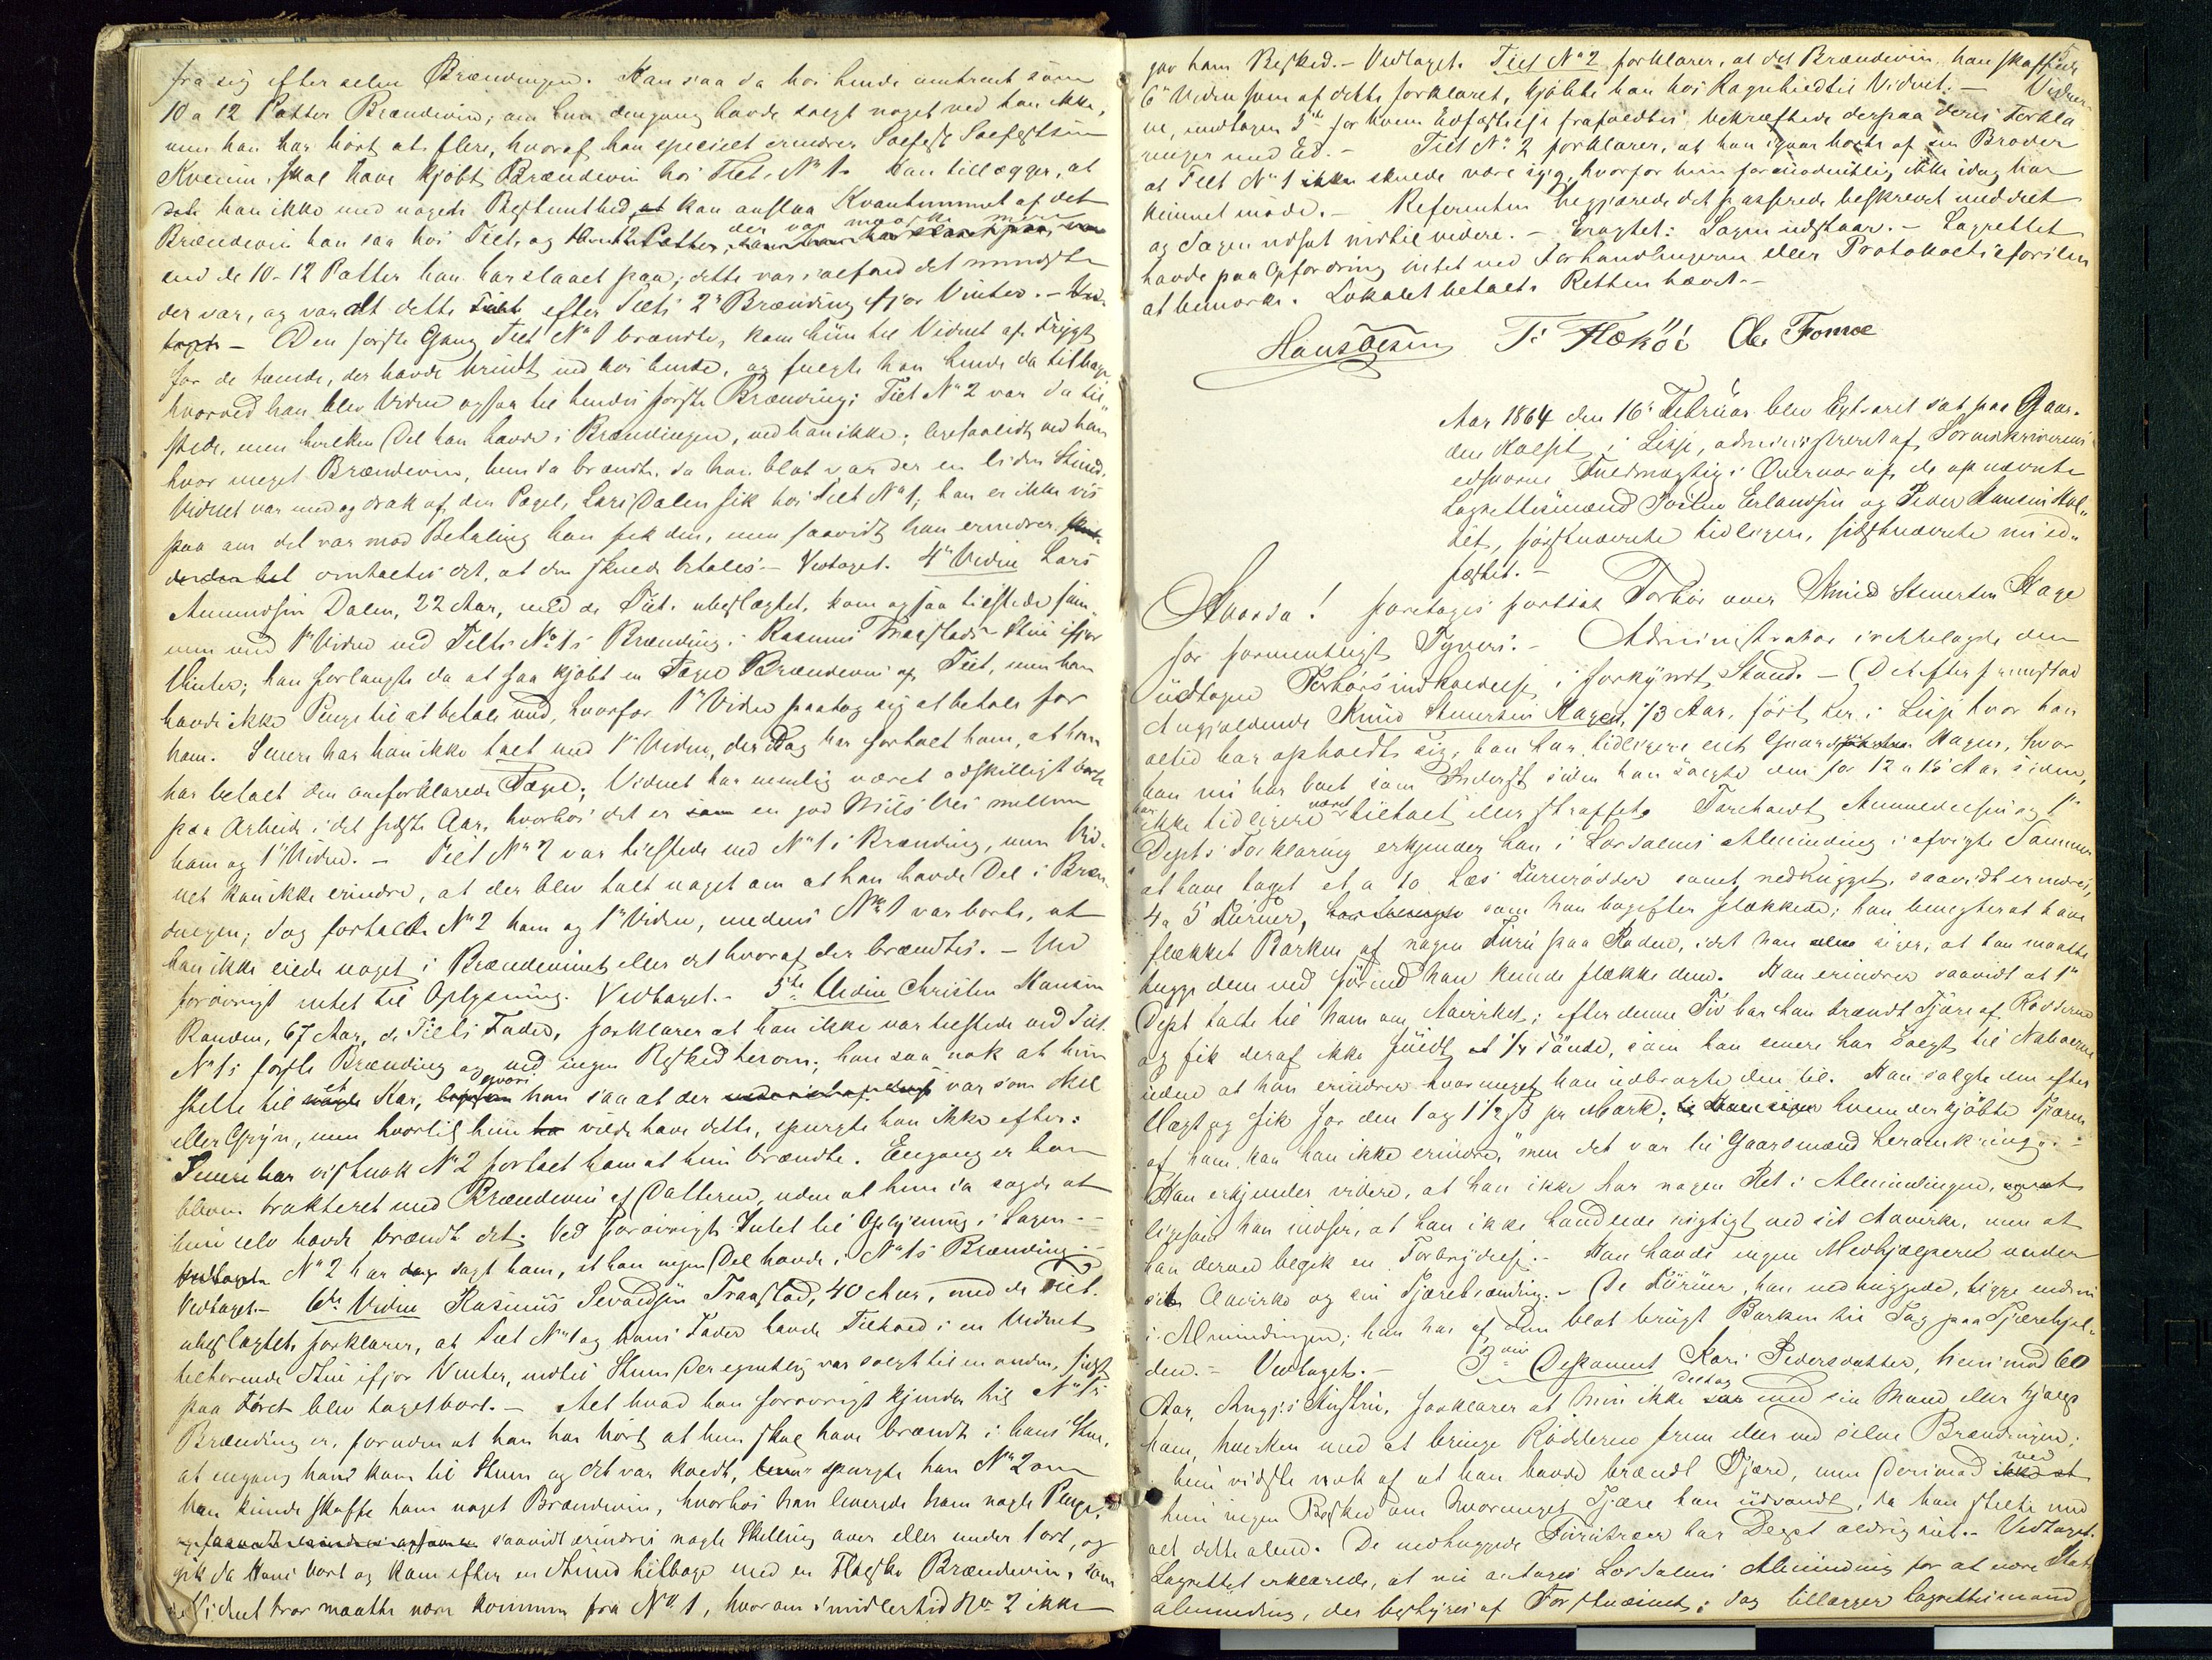 fra sig efter selve Brændingen. Han saa da hos hende omtrent som
10 a 12 Potter Brændeviin; om hun dengang havde solgt noget ved han ikke,
men han har hørt at flere, hvoraf han specielt erindrer
skal have kjøbt Brændeviin hos Tilt. No 1. Han tillægger, at
han ikke med nogen Bestemthed kan anslaa Kvantummet af det
Brændeviin han saa hos Tilt. og der var maaske mere
end de 10-12 Potter han har slaaet paa; dette var ialfald det mindste
der var, og var alt dette efter Tilts 2den Brænding ifjor Vinter. – Ved-
taget. – Den første Gang Tilt No 1 brændte, kom hun til Vidnet af Frygt
for de Mænd, der havde brudt ind hos hende, og fulgte han hende da tilbage
hvorved han blev Vidne ogsaa til hendes første Brænding; Tilt No 2 var da til-
stede, men hvilken Del han havde i Brændingen, ved han ikke; ligesaalidt ved han
hvor meget Brændeviin, hun da brændte, da han blot var der en liden Stund.
Vidnet var med og drak af den Pægel, Lars Dalen fik hos Tilt No 1; han er ikke vis
paa om det var mod Betaling han fik den, men saavidt han erindrer
omtaltes det, at den skulde betales. – Vedtaget. 4de Vidne Lars
Amundsen Dalen, 22 Aar, med de Tilt. ubeslægtet, kom ogsaa tilstede sam-
men med 1ste Vidne ved Tilts No 1s Brænding i Rasmus Traastads Stue ifjor
Vinter; han forlangte da at faa kjøbt en Pægel Brændeviin af Tilt, men han
havde ikke Penge til at betale med, hvorfor 1ste Vidne paatog sig at betale for
ham. Senere har han ikke talt med 1ste Vidne, der idag har fortalt ham, at han
har betalt den omforklarede Pægel; Vidnet har nemlig været adskilligt borte
paa Arbeide i det sidste Aar, hvorhos det er en god Miils Vei mellem
ham og 1ste Vidne. – Tilt No 2 var tilstede ved No 1s Brænding, men Vid-
net kan ikke erindre, at der blev talt noget om at han havde Del i Bræn-
dingen; dog fortalte No 2 ham og 1ste Vidne, medens No 1 var borte, at
han ikke eiede noget i Brændevinet eller det hvoraf der brændtes. – Ved
forøvrigt intet til Oplysning. Vedtaget. – 5te Vidne Christen Hansen
Randen, 67 Aar, de Tilts Fader, forklarer at han ikke var tilstede ved Tilt
No 1s første Brænding og ved ingen Besked herom; han saa nok at hun
stelte til et Kar, hvori han saa at der var som Mel
eller Gryn, men hvortil hun vilde have dette, spurgte han ikke efter.
Senere har vistnok No 2 fortalt ham at hun brændte. Engang er han
bleven trakteret med Brændeviin af Datteren, uden at hun da sagde at
hun selv havde brændt det. Ved forøvrigt Intet til Oplysning i Sagen. –
No 2 har sagt ham, at han ingen Del havde i No 1s Brænding. –
Vedtaget. – 6te Vidne Rasmus Sivardsen Traastad, 40 Aar, med de Tilt.
ubeslægtet, forklarer, at Tilt No 1 og hans Fader havde Tilhold i en Vidnet
tilhørende Stue ifjor Vinter, indtil Stuen, der egentlig var solgt til en anden, sidst
paa Føret blev taget bort. – Alt hvad han forøvrigt kjender til No 1s
Brænding er, foruden at han har hørt at hun skal have brændt i hans Stue,
at engang hans kom til Stuen og det var koldt, spurgte han No 2 om
han kunde skaffe ham noget Brændeviin, hvorhos han leverede ham nogle Penge,
saavidt erindres nogle Skilling over eller under 1 ort, og
gik da Hans bort og kom efter en Stund tilbage med en Flaske Brændeviin, som
Vidnet tror maatte være kommen fra No 1, hvorom imidlertid No 2 ikke
gav ham Besked. – Vedtaget. Tilt No 2 forklarer, at det Brændeviin han skaffede
6te Vidne som af dette forklaret, kjøbte han hos Ragnhild til Vidnet. – Vidner-
ne, undtagen 5te for hvem Edfæstelse frafaldtes, bekræftede derpaa deres Forkla-
ringer med Ed. – Tilt No 2 forklarer, at han igaar hørte af sin Broder
at Tilt No 1 skulde være syg, hvorfor hun formodentlig ikke idag har
kunnet møde. – Referenten begjærede det passerede beskrevet meddelt
og Sagen udsat indtil videre. – Eragtet: Sagen udstaar. – Lagrettet
havde paa Opfordring intet ved Forhandlingerne eller Protokoltilførslen
at bemærke. Lokalet betalt. Retten hævet. –
Hans Olsen T: Flækøi Ole Tomoe
Aar 1864 den 16de Februar blev Extraret sat paa Gaar-
den Holset i Lesje, administreret af Sorenskriverens
edsvorne Fuldmægtig i Overvær af de opnævnte
Lagrettesmænd Iver Erlandsen og Peder Hansen Hol-
set, førstnævnte tidligere, sidstnævnte nu ed-
fæstet. –
Hvorda! foretages fortsat Forhør over Knud Stenersen Hage
for formentligt Tyveri. – Administrator irettelagde den
udtagne Forhørsindkaldelse i forkyndt Stand. – Derefter fremstod
Angjældende Knud Stenersen Hagen, 73 Aar, født her i Lesje hvor han
altid har opholdt sig; han har tidligere eiet Hagen, hvor
han nu har boet som Inderst siden han solgte den for 12 a 15 Aar siden,
har ikke tidligere været tiltalt eller straffet. Foreholdt Anmeldelsen og 1ste
Depts Forklaring erkjender han i Lordalens Alminding i afvigte Sommer
at have taget et a to Læs Tyrirødder samt nedhugget, saavidt erindres,
4 a 5 Furuer, som han bagefter flækkede; han benegter at have
flækket Barken af nogen Furu paa Roden, idet han siger, at han maatte
hugge dem ned førend han kunde flække dem. Han erindrer saavidt at 1ste
Dept talte til ham om Aavirket; efter denne Tid har han brændt Tjære af Rødderne
og fik deraf ikke fuldt 1/2 Tønde, som han senere har solgt til Naboerne
uden at han erindrer hvormeget han udbragte den til. Han solgte den efter
Vægt og fik for den 1 og 1 1/2 ß pr Mark; hvem der kjøbte Tjæren
af ham kan han ikke erindre, men det var til Gaardmænd heromkring. –
Han erkjender videre, at han ikke har nogen Ret i Almindingen,
ligesom han indser, at han ikke handlede rigtigt ved sit Aavirke, men at
han derved begik en Forbrydelse. – Han havde ingen Medhjælpere under
sit Aavirke og sin Tjærebrænding. – De Furuer, han nedhuggede, ligge endnu
i Almindingen; han har af dem blot brugt Barken til Tag paa Tjærehjel-
den. – Vedtaget. – 2den Deponent Kari Pedersdatter, henimod 60
Aar, Angj:s Hustru, forklarer at hun ikke deltog med sin Mand eller hjalp
ham, hverken med at bringe Rødderne frem eller ved selve Brændingen;
hun vidste nok af at han havde brændt Tjære, men derimod ved
hun ingen Besked om hvormeget Tjære han udvandt, da han stelte med
alt dette alene. De nedhuggede Furutræer har Dept aldrig seet. – Vedtaget.
Lagrettet erklærede, at nu antages Lordalens Alminding for at være Stats-
alminding, der bestyres af Forstvæsenet; dog tillægger Lagrettesmand